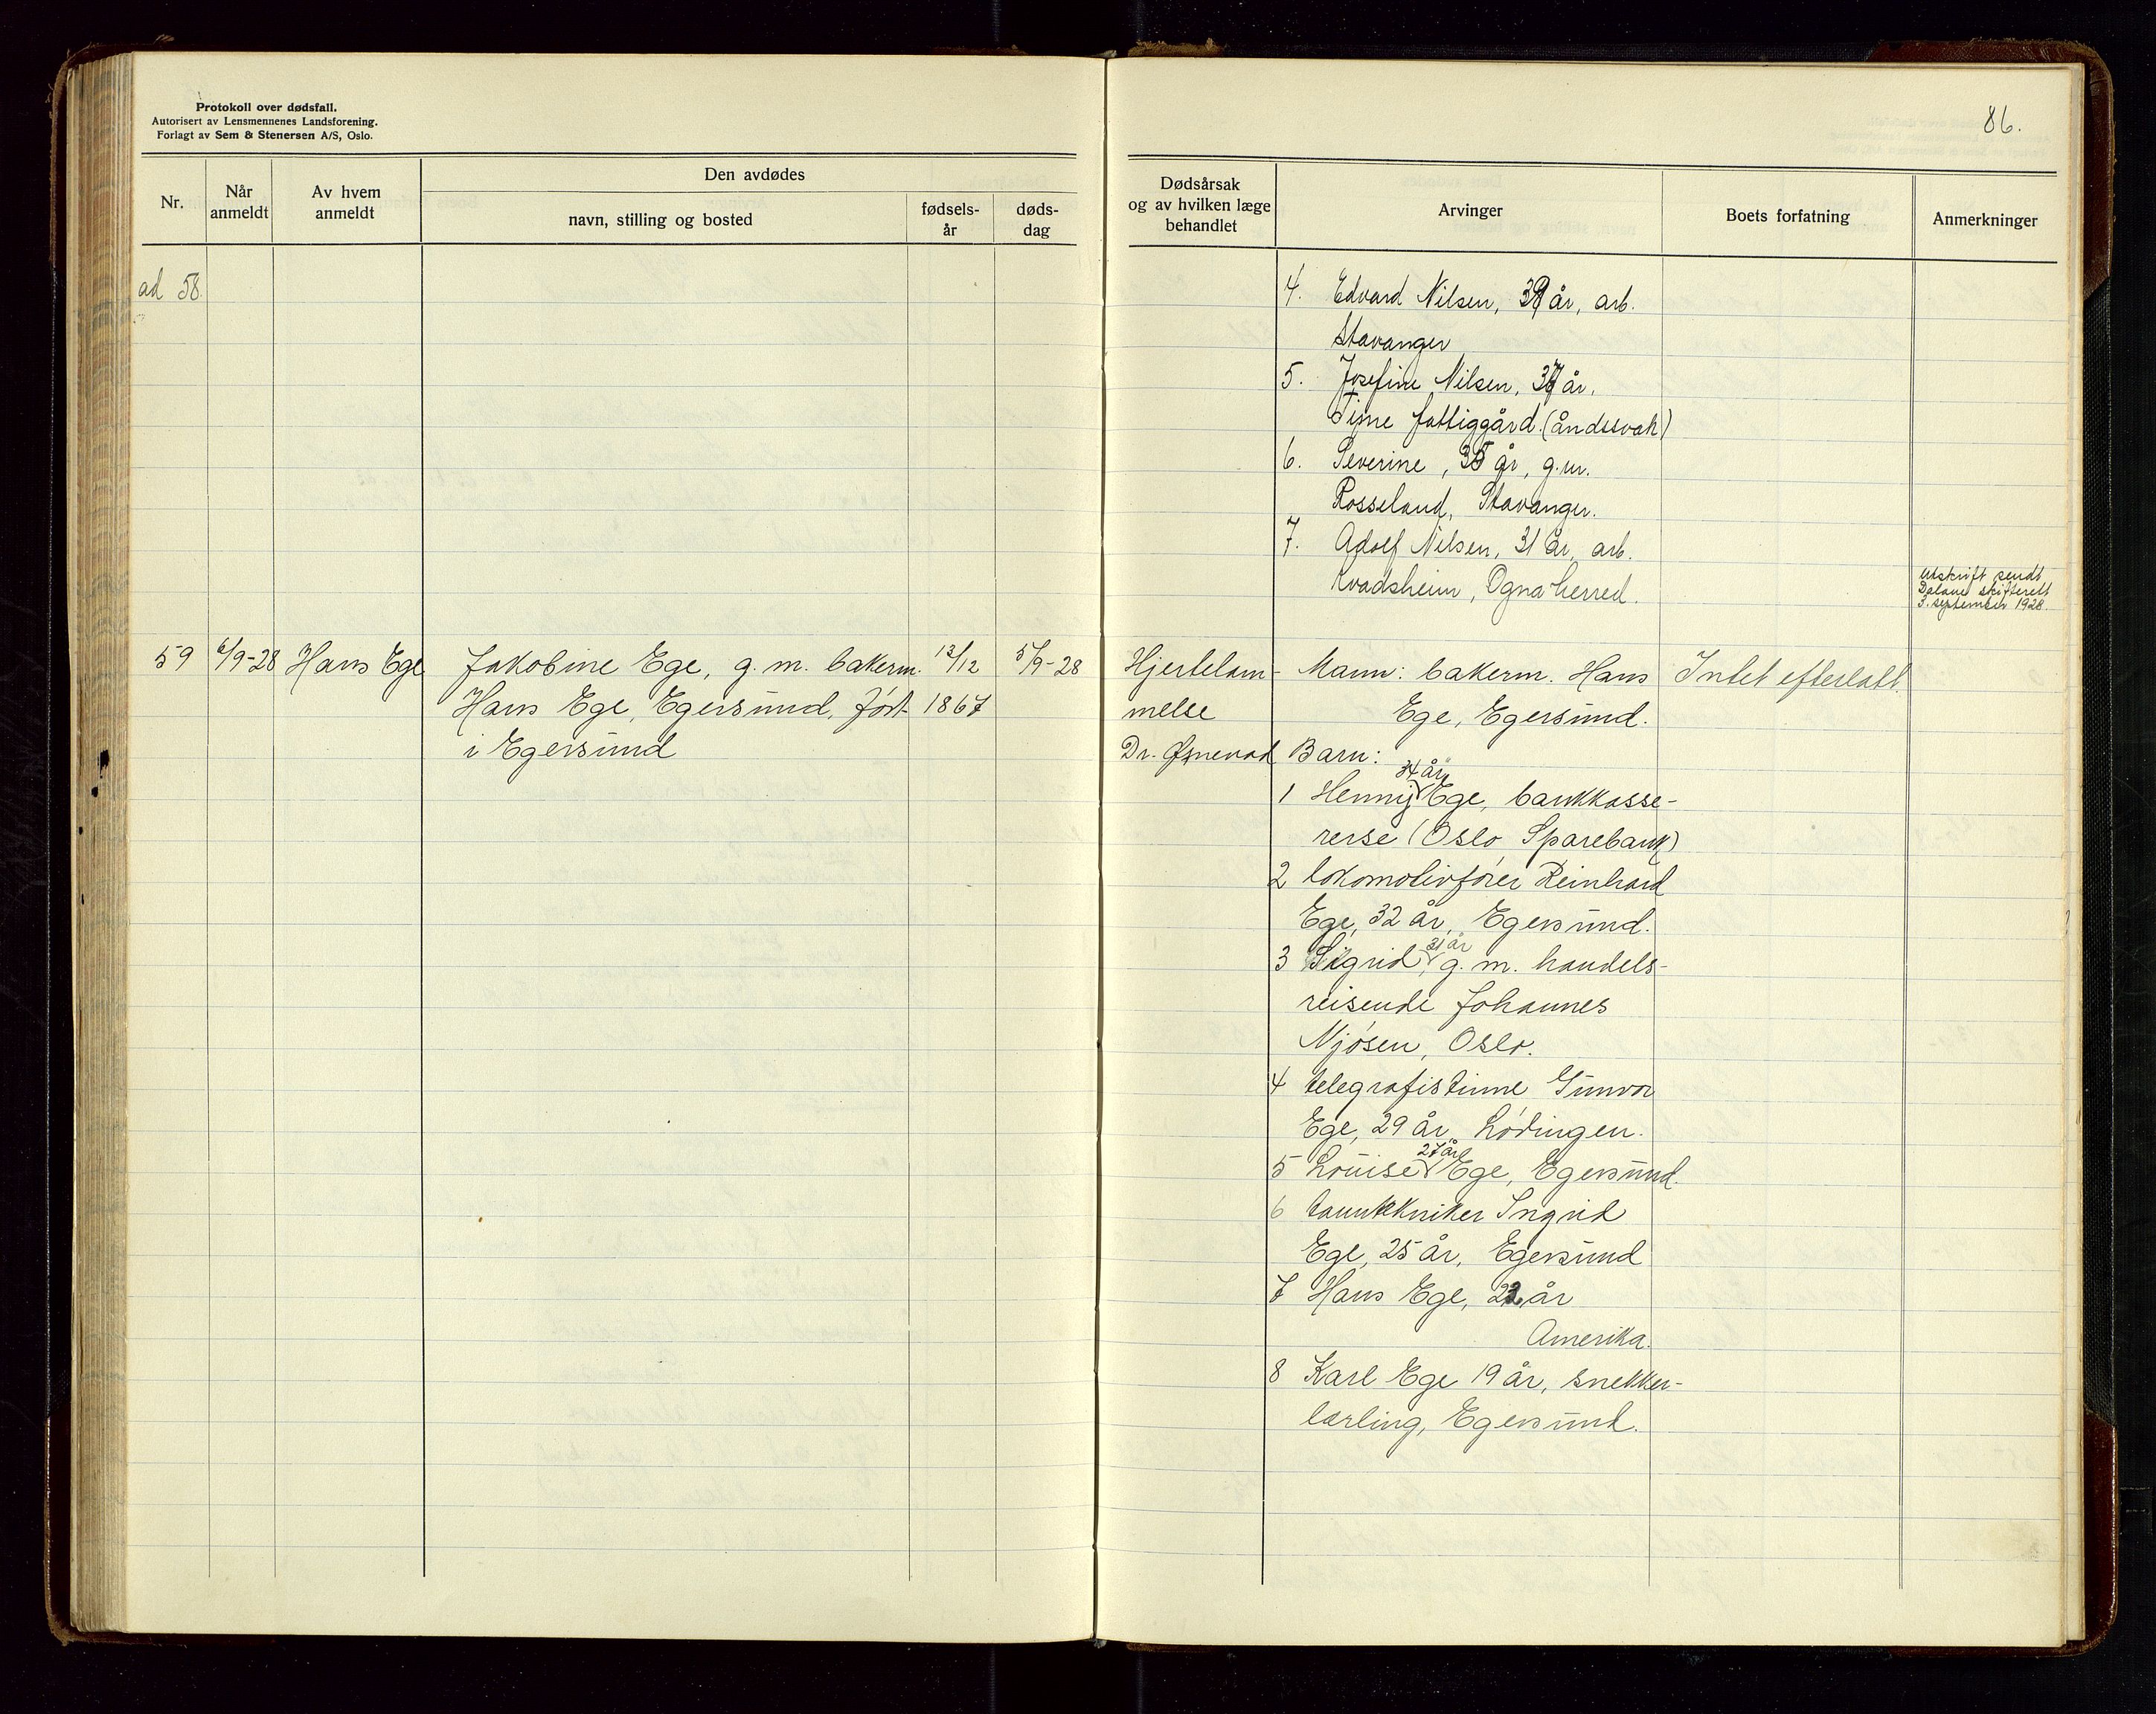 Protokoll over dødsfall.
Autorisert av Lensmennenes Landsforening.
Forlagt av Sem & Stenersen A/S, Oslo.
86.
Nr.
Når anmeldt
Av hvem anmeldt
Den avdødes
navn, stilling og bosted
fødsels-år
døds-dag
Dødsårsak
og av hvilken læge
behandlet
Arvinger
Boets forfatning
Anmerkninger
ad 58.
4. Edvard Nilsen, 39 år, arb.
Stavanger
5. Josefine Nilsen, 37 år,
Time fattiggård. (åndssvak)
6. Severine, 35 år, g.m.
Rosseland, Stavanger.
7. Adolf Nilsen, 31 år, arb.
Kvadsheim, Ogna herred.
Utskrift sendt
Dalane skifterett
3. september 1928.
59 6/9-28 Hans Ege Jakobine Ege, g. m. bakerm. 13/12 5/9-28
Hans Ege, Egersund, født 1867
i Egersund
Hjertelam-
melse
Dr. Øgnevad
Mann: bakerm. Hans
Ege, Egersund.
Intet efterlatt.
Barn:
34 år,
1 Henny Ege, bankkasse-
rerse (Oslo Sparebank)
2 lokomotivfører Reinhard
Ege, 32 år, Egersund.
31 år
3 Sigrid, g. m. handels-
reisende Johannes
Njøsen, Oslo.
4 telegrafistinne Gunvor
Ege, 29 år, Lødingen.
27 år
5 Louise Ege, Egersund.
6 tanntekniker Ingrid
Ege, 25 år, Egersund
7 Hans Ege, 22 år
Amerika.
8 Karl Ege 19 år, snekker-
lærling, Egersund.